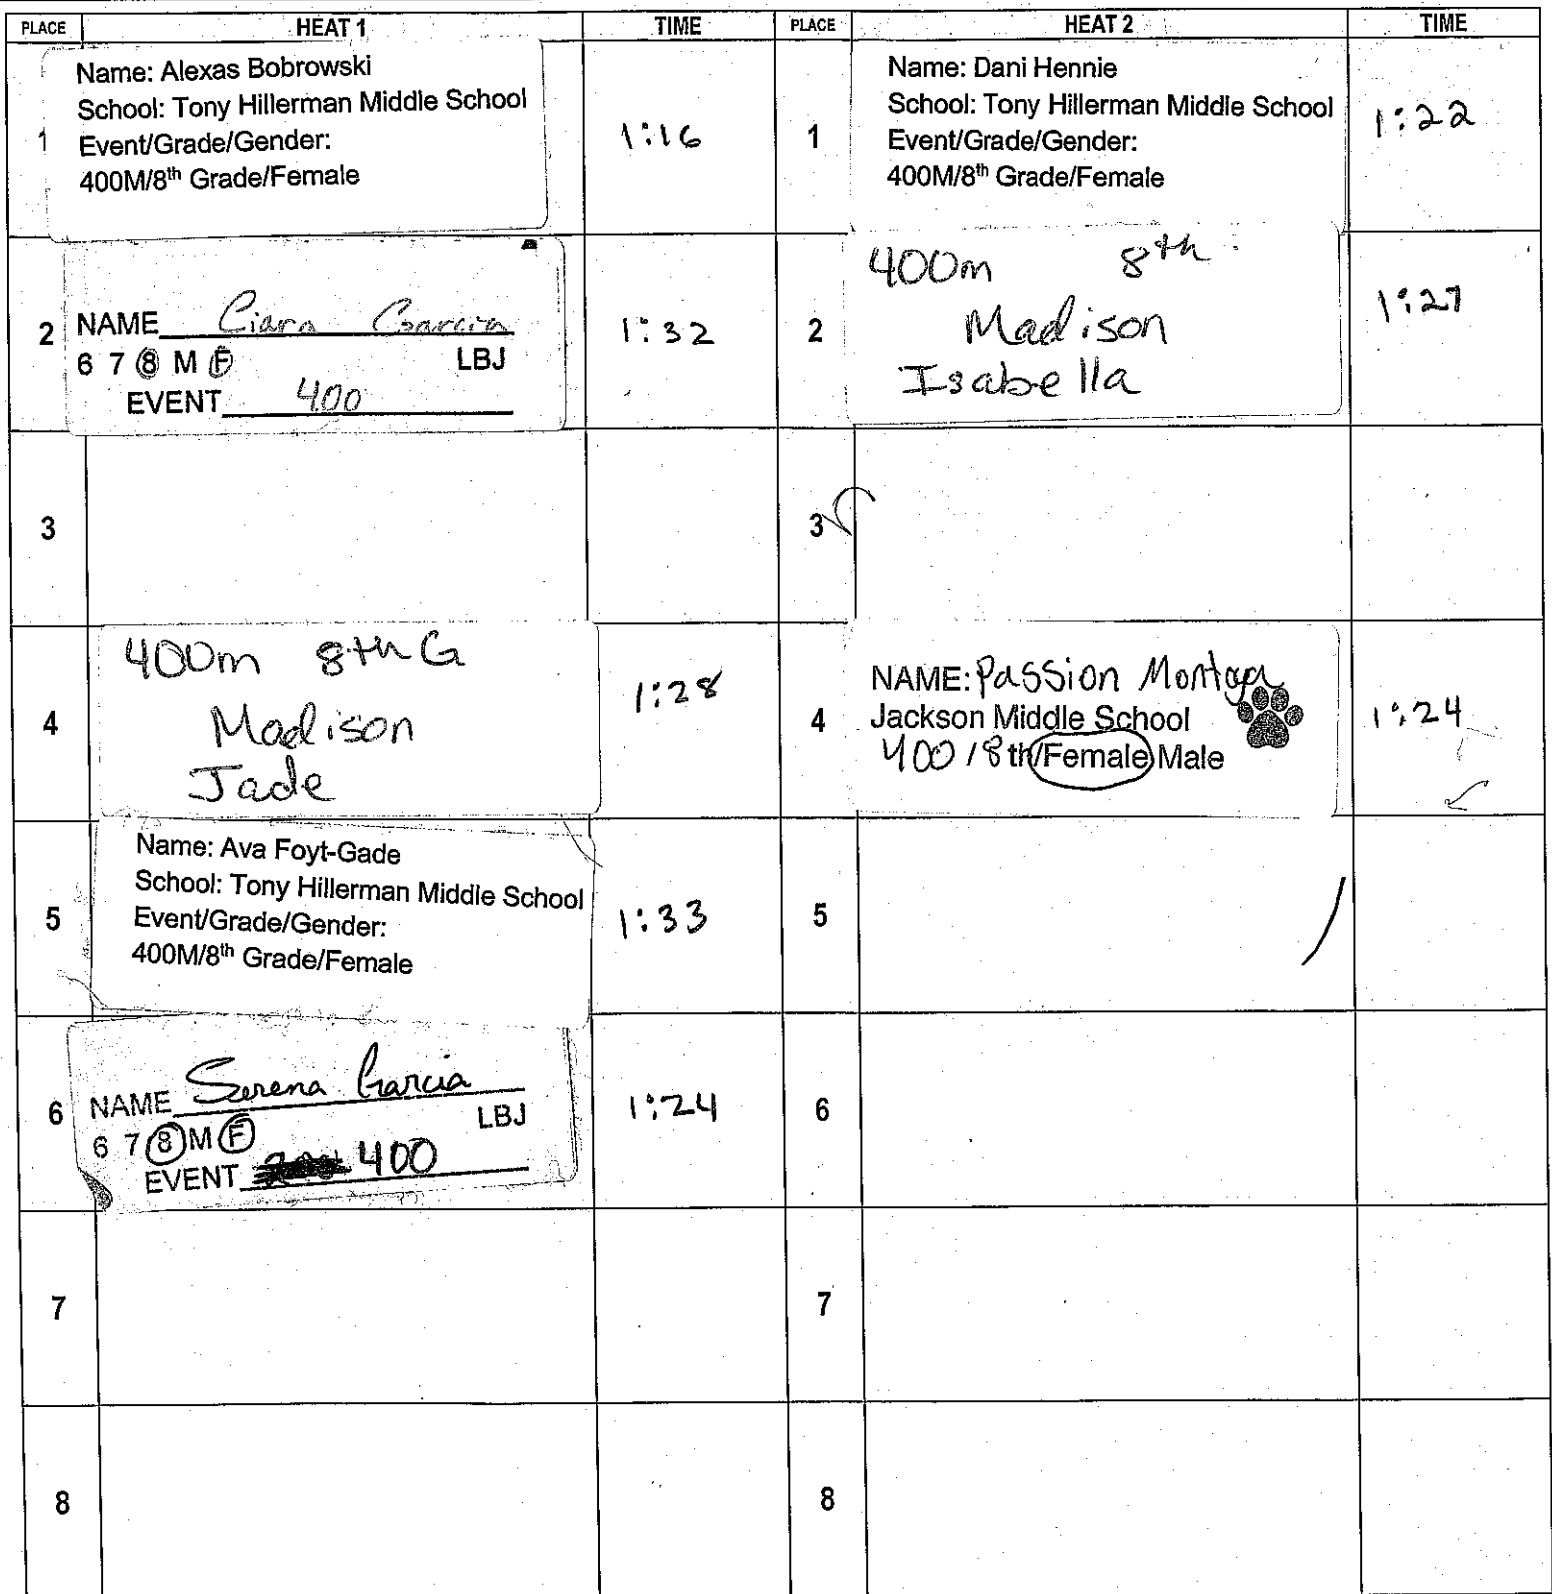 PLACE HEAT 1 TIME PLACE HEAT 2 TIME
1
Name: Alexas Bobrowski
School: Tony Hillerman Middle School
Event/Grade/Gender:
400M/8th Grade/Female
1:16
1
Name: Dani Hennie
School: Tony Hillerman Middle School
Event/Grade/Gender:
400M/8th Grade/Female
1:22
2
NAME Ciara Garcia
6 7 8 M F LBJ
EVENT 400
1:32
2
400m 8th
Madison
Isabella
1:27
3
3
4
400m 8th G
Madison
Jade
1:28
4
NAME: Passion Montoya
Jackson Middle School
400 / 8th/Female Male
1:24
5
Name: Ava Foyt-Gade
School: Tony Hillerman Middle School
Event/Grade/Gender:
400M/8th Grade/Female
1:33
5
6
NAME Serena Garcia
6 7 8 M F LBJ
EVENT 400
1:24
6
7
7
8
8